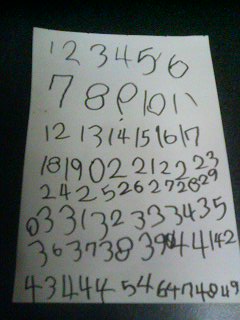 1 2 3 4 5 6
7 8 9 10 11
12 13 14 15 16 17
18 19 02 21 22 23
24 25 26 27 28 29
03 31 32 33 34 35
36 37 38 39 04 41 42
43 44 54 64 74 84 9